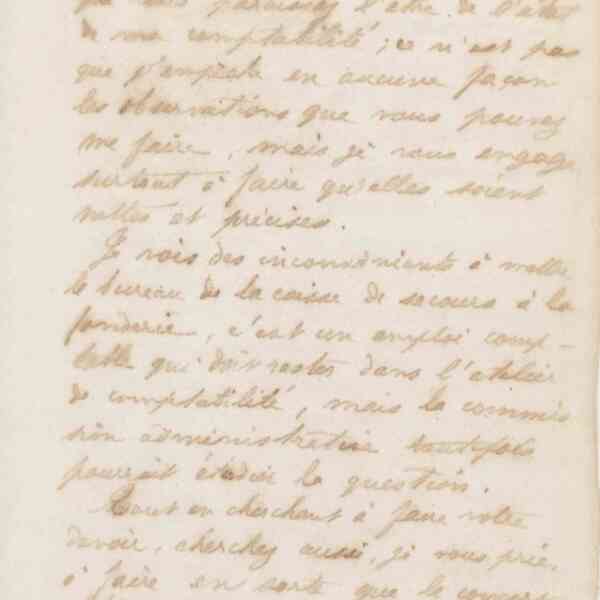 que vous paraissez l'être de l'état
de ma comptabilité ; ce n'est pas
que j'empêche en aucune façon
les observations que vous pouvez
me faire, mais je vous engage
surtout à faire qu'elles soient
nettes et précises.
Je vois des inconvénients à mettre
le bureau de la caisse de secours à la
fonderie, c'est un emploi comp-
table qui doit rester dans l'atelier
de comptabilité, mais la commis
sion administrative toutefois
pourrait étudier la question.
Tout en cherchant à faire votre
devoir, cherchez aussi, je vous prie,
à faire en sorte que le concert